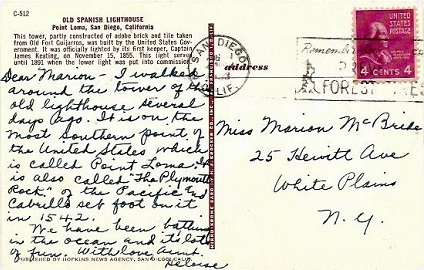 C-512
OLD SPANISH LIGHTHOUSE
Point Loma, San Diego, California
This tower, partly constructed of adobe brick and tile taken
from Old Fort Guijarros, was built by the United States Gov-
ernment. It was officially lighted by its first keeper, Captain
James Keating, on November 15, 1855. This light served
until 1891 when the lower light was put into commission.
Dear Marion - I walked
around the tower of the
old lighthouse several
days ago. It is on the
most Southern point of
the United States which
is called Point Loma. It
is also called "The Plymouth
Rock" of the Pacific.
Cabrillo set foot on it
in 1542.
We have been bathing
in the ocean and its lots
of fun. With love Aunt
Heloise
PUBLISHED BY HOPKINS NEWS AGENCY, SAN DIEGO, CALIF.
address
SAN DIEGO
CALIF.
Remember
FOREST FIRES
UNITED STATES
POSTAGE
4 CENTS 4
Miss Marion McBride
25 Hewitt Ave
White Plains
N. Y.